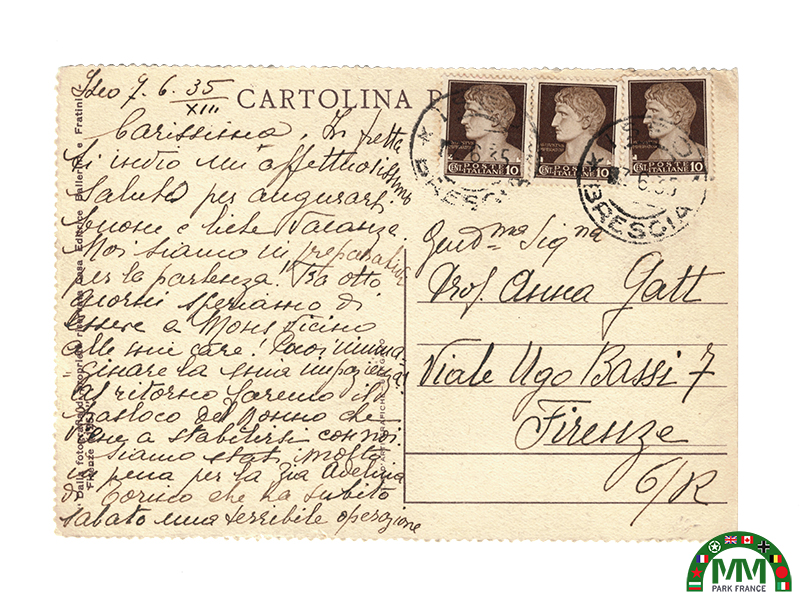 Iseo 7. 6. 35
XIII
CARTOLINA P
Carissima, In fretta
ti invio un affettuosissimo
saluto per augurarti
buone e liete vacanze.
Noi siamo in preparativi
per la partenza. Tra otto
giorni speriamo di
essere a Monteticino
alle mie care! Puoi imma
ginare la mia impazienza!
Al ritorno faremo il
trasloco del nonno che
viene a stabilirsi con noi.
Siamo stati molto
in pena per la zia Adelina
di Torino che ha subito
sabato una terribile operazione
Gent.ma Sig.na
Prof. Anna Gatt
Viale Ugo Bassi 7
Firenze
G/R
POSTE
ITALIANE
CENT. 10
POSTE
ITALIANE
CENT. 10
POSTE
ITALIANE
CENT. 10
BRESCIA
BRESCIA
Dalla fotografia di proprietà riservata Casa Editrice Ballerini e Fratini
Firenze
MM
PARK FRANCE